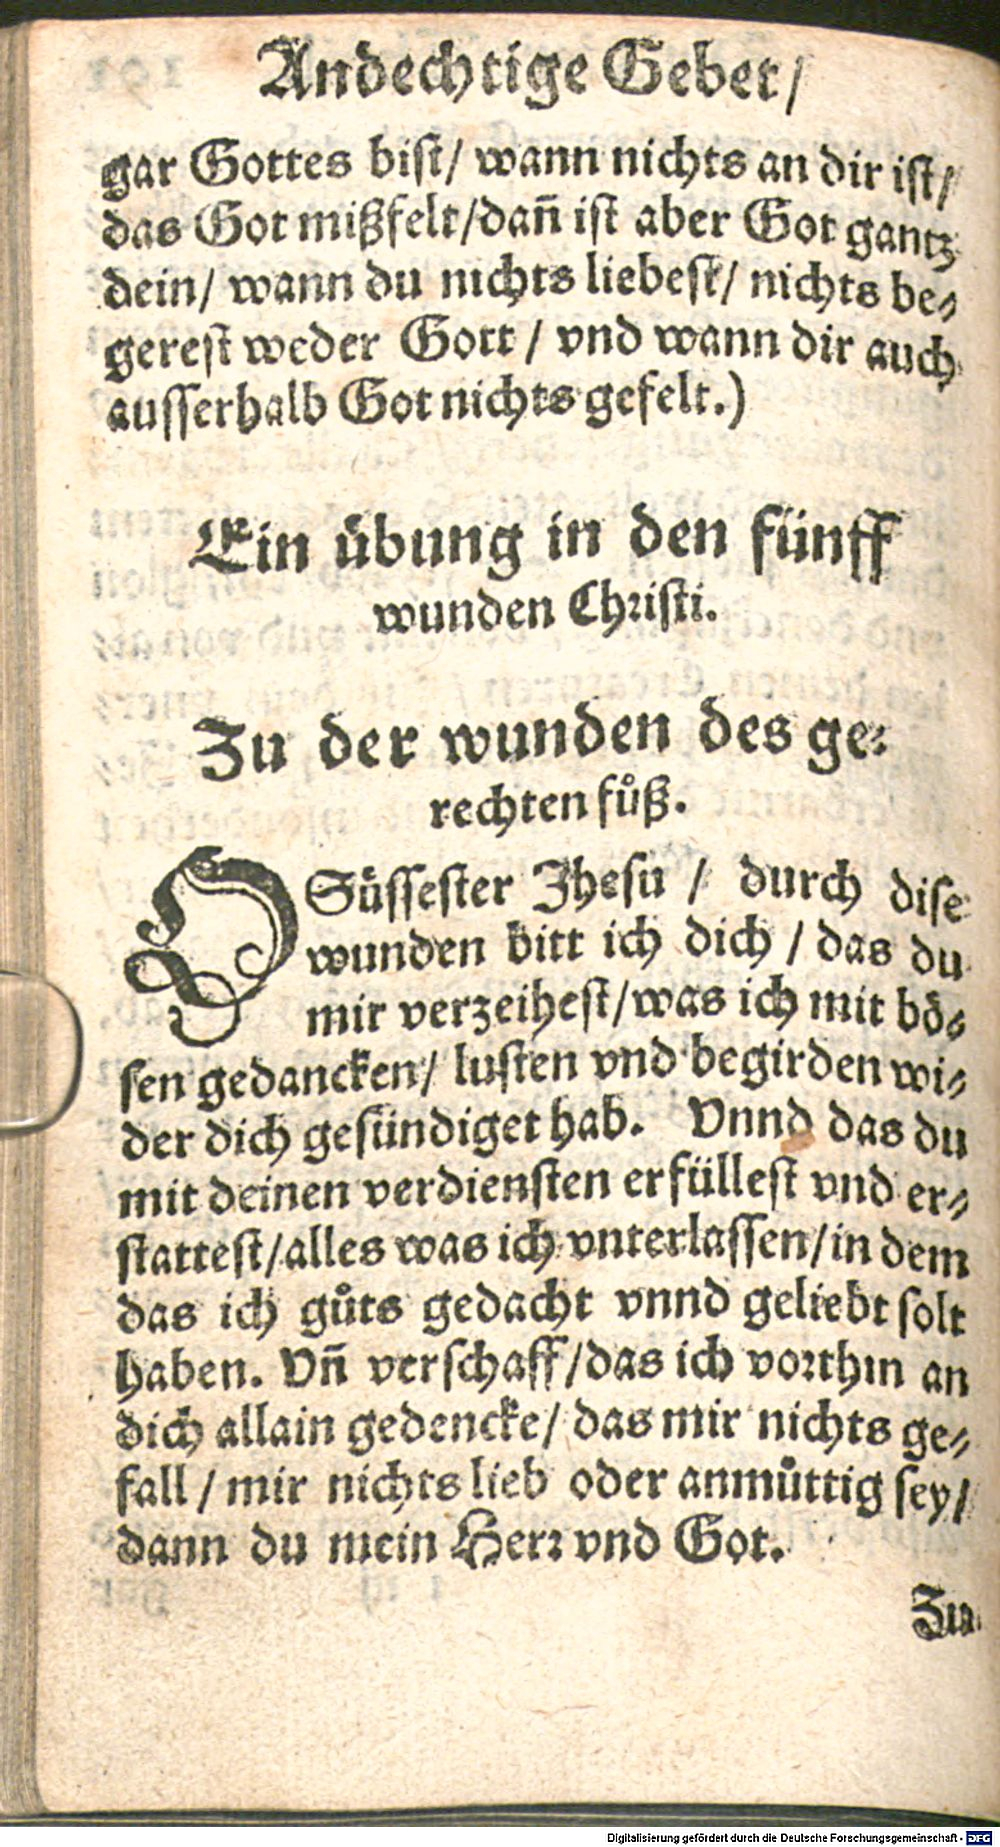 Andechtige Gebet/
gar Gottes bist/ wann nichts an dir ist/
das Got mißfelt/dañ ist aber Got gantz
dein/ wann du nichts liebest/ nichts be⸗
gerest weder Gott / vnd wann dir auch
ausserhalb Got nichts gefelt.)
Ein übung in den fünff
wunden Christi.
Zu der wunden des ge⸗
rechten fůß.
O Süssester Jhesu / durch dise
wunden bitt ich dich / das du
mir verzeihest/was ich mit bö⸗
sen gedancken/ lusten vnd begirden wi⸗
der dich gesündiget hab. Vnnd das du
mit deinen verdiensten erfüllest vnd er⸗
stattest/alles was ich vnterlassen/in dem
das ich gůts gedacht vnnd geliebt solt
haben. Vñ verschaff/das ich vorthin an
dich allain gedencke/ das mir nichts ge⸗
fall / mir nichts lieb oder anmůttig sey/
dann du mein Herr vnd Got.
Zu
Digitalisierung gefördert durch die Deutsche Forschungsgemeinschaft - DFG